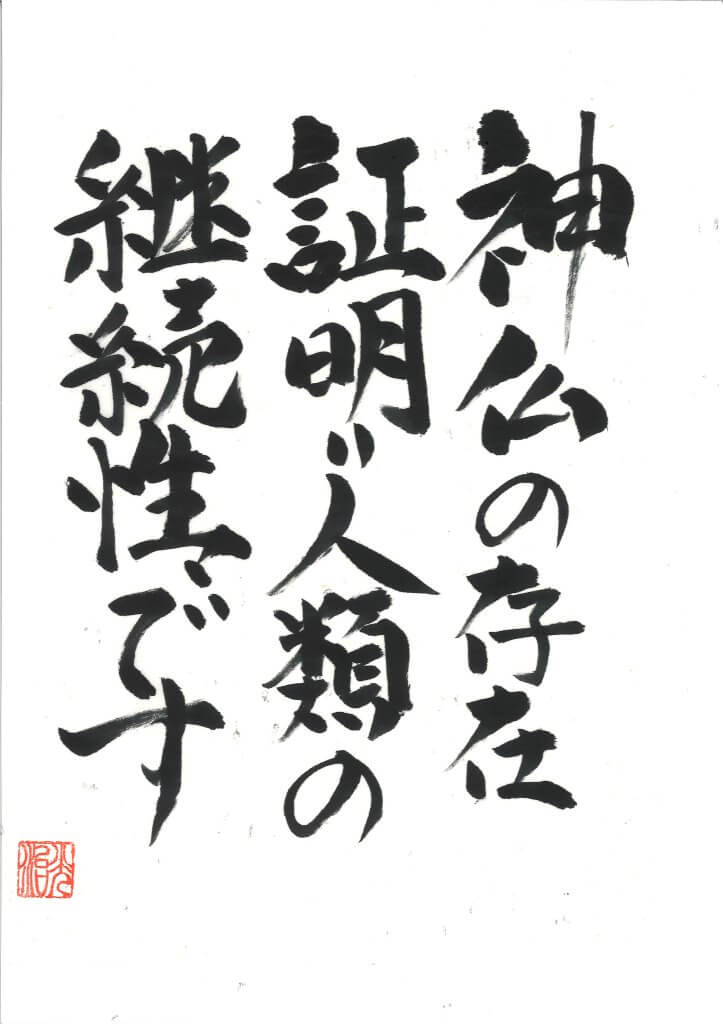 神仏の存在
証明人類の
継続性です